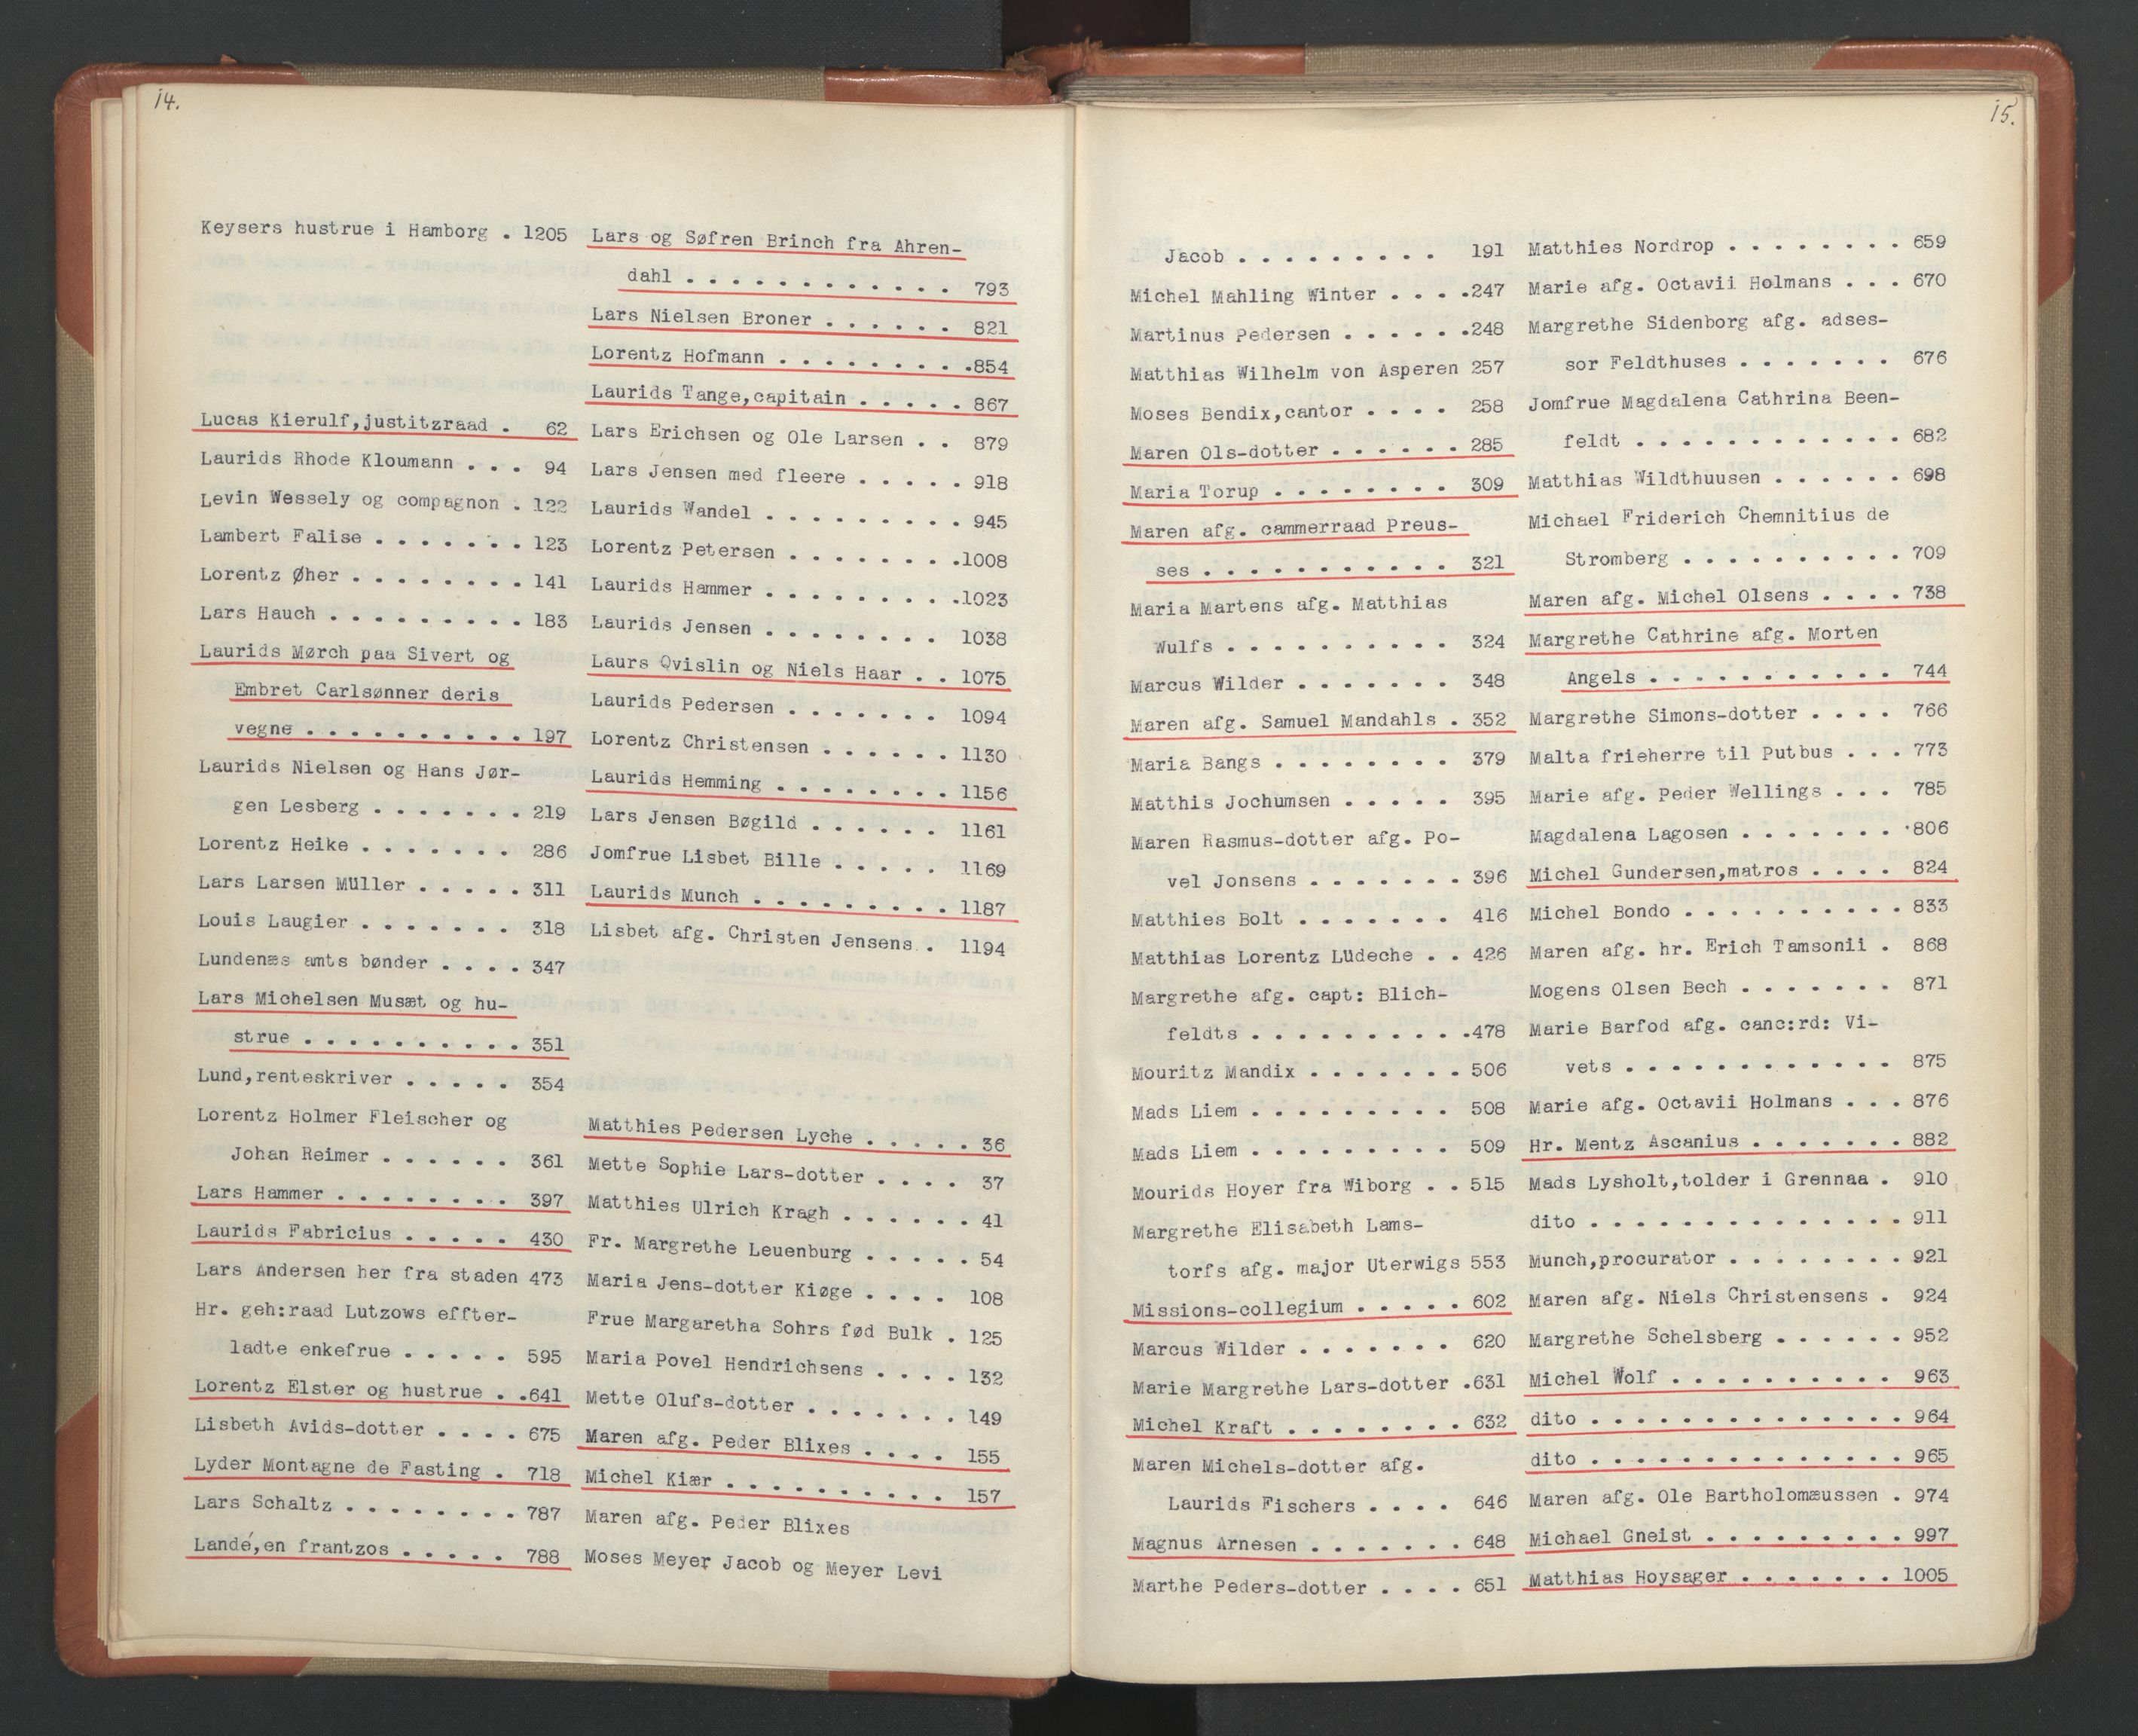 14.
Keysers hustrue i Hamborg . 1205
Lucas Kierulf,justitzraad . 62
Laurids Rhode Kloumann . . . 94
Levin Wessely og compagnon . 122
Lambert Falise . . . . . . . 123
Lorentz Øher . . . . . . . . 141
Lars Hauch . . . . . . . . . 183
Laurids Mørch paa Sivert og
Embret Carlsønner deris
vegne . . . . . . . . . . 197
Laurids Nielsen og Hans Jør-
gen Lesberg . . . . . . . 219
Lorentz Heike . . . . . . . 286
Lars Larsen Müller . . . . . 311
Louis Laugier . . . . . . . 318
Lundenæs amts bønder . . . . 347
Lars Michelsen Musæt og hu-
strue . . . . . . . . . . 351
Lund,renteskriver . . . . . 354
Lorentz Holmer Fleischer og
Johan Reimer . . . . . . 361
Lars Hammer . . . . . . . . 397
Laurids Fabricius . . . . . 430
Lars Andersen her fra staden 473
Hr. geh:raad Lutzows effter-
ladte enkefrue . . . . . 595
Lorentz Elster og hustrue . .641
Lisbeth Avids-dotter . . . . 675
Lyder Montagne de Fasting . 718
Lars Schaltz . . . . . . . . 787
Landé,en frantzos . . . . . 788
Lars og Søfren Brinch fra Ahren-
dahl . . . . . . . . . . . . 793
Lars Nielsen Broner . . . . . . 821
Lorentz Hofmann . . . . . . . . .854
Laurids Tange,capitain . . . . . 867
Lars Erichsen og Ole Larsen . . 879
Lars Jensen med fleere . . . . . 918
Laurids Wandel . . . . . . . . . 945
Lorentz Petersen . . . . . . . .1008
Laurids Hammer . . . . . . . . .1023
Laurids Jensen . . . . . . . . 1038
Laurs Qvislin og Niels Haar . . 1075
Laurids Pedersen . . . . . . . 1094
Lorentz Christensen . . . . . . 1130
Laurids Hemming . . . . . . . . 1156
Lars Jensen Bøgild . . . . . . 1161
Jomfrue Lisbet Bille . . . . . 1169
Laurids Munch . . . . . . . . . 1187
Lisbet afg. Christen Jensens . 1194
Matthies Pedersen Lyche . . . . . 36
Mette Sophie Lars-dotter . . . . 37
Matthies Ulrich Kragh . . . . . . 41
Fr. Margrethe Leuenburg . . . . . 54
Maria Jens-dotter Kiøge . . . . 108
Frue Margaretha Sohrs fød Bulk . 125
Maria Povel Hendrichsens . . . . 132
Mette Olufs-dotter . . . . . . . 149
Maren afg. Peder Blixes . . . . 155
Michel Kiær . . . . . . . . . . 157
Maren afg. Peder Blixes
Moses Meyer Jacob og Meyer Levi
15.
Jacob . . . . . . . . . 191
Michel Mahling Winter . . . .247
Martinus Pedersen . . . . . .248
Matthias Wilhelm von Asperen 257
Moses Bendix,cantor . . . . 258
Maren Ols-dotter . . . . . . 285
Maria Torup . . . . . . . . 309
Maren afg. cammerraad Preus-
ses . . . . . . . . . . . 321
Maria Martens afg. Matthias
Wulfs . . . . . . . . . . 324
Marcus Wilder . . . . . . . 348
Maren afg. Samuel Mandahls . 352
Maria Bangs . . . . . . . . 379
Matthis Jochumsen . . . . . 395
Maren Rasmus-dotter afg. Po-
vel Jonsens . . . . . . . 396
Matthies Bolt . . . . . . . 416
Matthias Lorentz Lüdeche . . 426
Margrethe afg. capt: Blich-
feldts . . . . . . . . . .478
Mouritz Mandix . . . . . . . 506
Mads Liem . . . . . . . . . 508
Mads Liem . . . . . . . . . 509
Mourids Hoyer fra Wiborg . . 515
Margrethe Elisabeth Lams-
torfs afg. major Uterwigs 553
Missions-collegium . . . . . 602
Marcus Wilder . . . . . . . 620
Marie Margrethe Lars-dotter .631
Michel Kraft . . . . . . . . 632
Maren Michels-dotter afg.
Laurids Fischers . . . . 646
Magnus Arnesen . . . . . . . 648
Marthe Peders-dotter . . . . 651
Matthies Nordrop . . . . . . . . 659
Marie afg. Octavii Holmans . . . 670
Margrethe Sidenborg afg. adses-
sor Feldthuses . . . . . . . 676
Jomfrue Magdalena Cathrina Been-
feldt . . . . . . . . . . . . 682
Matthias Wildthuusen . . . . . . 698
Michael Friderich Chemnitius de
Stromberg . . . . . . . . . . 709
Maren afg. Michel Olsens . . . . 738
Margrethe Cathrine afg. Morten
Angels . . . . . . . . . . . 744
Margrethe Simons-dotter . . . . 766
Malta frieherre til Putbus . . . 773
Marie afg. Peder Wellings . . . 785
Magdalena Lagosen . . . . . . . .806
Michel Gundersen,matros . . . . 824
Michel Bondo . . . . . . . . . . 833
Maren afg. hr. Erich Tamsonii . 868
Mogens Olsen Bech . . . . . . . 871
Marie Barfod afg. canc:rd: Vi-
vets . . . . . . . . . . . . 875
Marie afg. Octavii Holmans . . . 876
Hr. Mentz Ascanius . . . . . . . 882
Mads Lysholt,tolder i Grennaa . 910
dito . . . . . . . . . . . . . . 911
Munch,procurator . . . . . . . . 921
Maren afg. Niels Christensens . 924
Margrethe Schelsberg . . . . . . 952
Michel Wolf . . . . . . . . . . 963
dito . . . . . . . . . . . . . . 964
dito . . . . . . . . . . . . . . 965
Maren afg. Ole Bartholomæussen . 974
Michael Gneist . . . . . . . . . 997
Matthias Hoysager . . . . . . . 1005